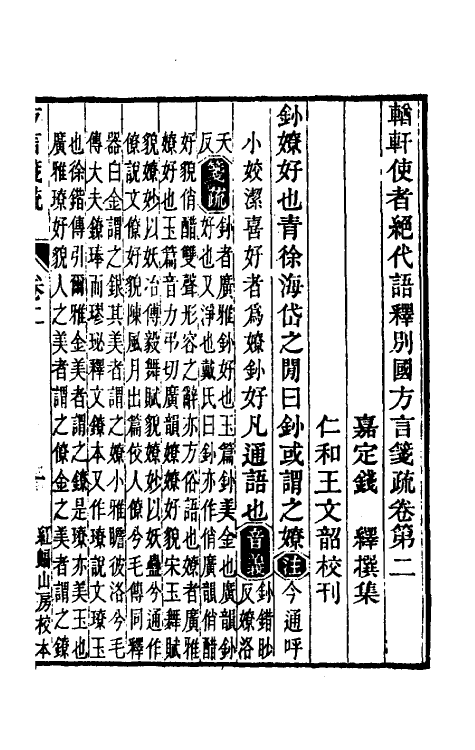 輶軒使者絕代語釋別國方言箋疏卷第二
嘉定錢 釋撰集
仁和王文韶校刊
釥嫽好也青徐海岱之閒曰釥或謂之嫽注今通呼
小姣潔喜好者爲嫽釥好凡通語也音義釥錯眇
反嫽洛
天
反箋疏釥者廣雅釥好也玉篇釥美金也廣韻釥
好也又淨也戴氏曰釥亦作俏廣韻俏醋
好貌俏醋雙聲形容之辭亦方俗語也嫽者廣雅
嫽好也玉篇音力弔切廣韻嫽嫽好貌宋玉舞賦
貌嫽妙以妖冶傅毅舞賦貌嫽妙以妖蠱兮通作
僚說文僚好貌陳風月出篇佼人僚兮毛傳同釋
器白金謂之銀其美者謂之鐐小雅瞻彼洛兮毛
傳大夫鐐琫而璆珌釋文鐐本又作璙說文璙玉
也徐鍇傳引爾雅金美者謂之鐐是璙亦美玉也
廣雅璙好貌人之美者謂之僚金之美者謂之鐐
方言箋疏 卷二 一 紅蝠山房校本